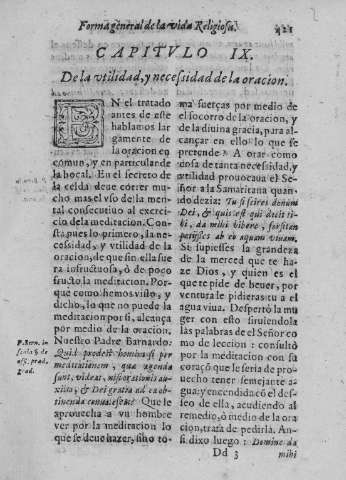 Forma general de la vida Religiosa. 421
CAPITVLO IX.
De la vtilidad, y necessidad de la oracion.
EN el tratado
antes de este
hablamos lar
gamente de
la oracion en
comun, y en particular de
la bocal. En el secreto de
la celda deue correr mu
cho mas el vso de la men
tal consecutiuo al exerci
cio de la meditacion. Con
sta pues lo primero, la ne
cessidad, y vtilidad de la
oracion, de que sin ella fue
ra infructuosa, ó de poco
fructo la meditacion. Por
qué como hemos visto, y
dicho, lo que no puede la
meditacion por si, alcança
por medio de la oracion.
P. Bern. in
scala §. de
assi. prad.
grad.
Nuestro Padre Barnardo:
Quid prodest homini si per
meditationem, quæ agenda
sunt, videat, nisi orationis au
xilio, & Dei gratia ad ea ob
tinenda conualescat? Que le
aprouecha a vn hombre
ver por la meditacion lo
que se deue hazer, sino to-
ma fuerças por medio de
el socorro de la oracion, y
de la diuina gracia, para al-
cançar en ello lo que se
pretende? A orar como
cosa de tanta necessidad, y
vtilidad prouocaua el Se-
ñor a la Samaritana quan
do dezia: Tu si scires donum
Dei, & quis est qui dicit ti-
bi, da mihi bibere, forsitan
petijsses ab eo aquam viuam.
Si supiesses la grandeza
de la merced que te ha-
ze Dios, y quien es el
que te pide de beuer, por
ventura le pidieras tu a el
agua viua. Despertó la mu
ger con esto siruiendola
las palabras de el Señor co
mo de leccion: consultó
por la meditacion con su
coraçõ que le seria de pro-
uecho tener semejante a-
gua: y encendida cõ el des-
seo de ella, acudiendo al
remedio, ó medio de la ora
cion, trata de pedirla. An-
si dixo luego: Domine da
Dd 3 mihi